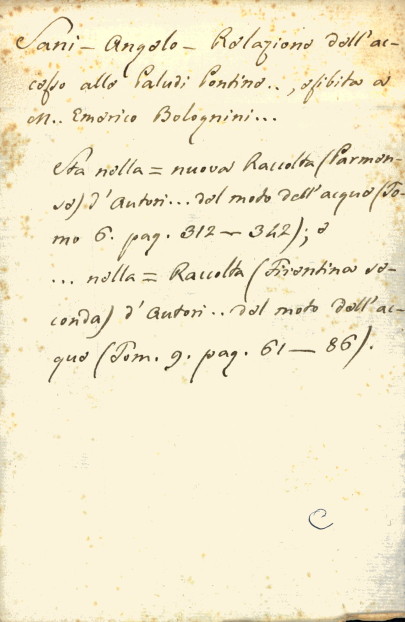 Sani - Angelo - Relazione dell'ac-
cesso alle Paludi Pontine.., esibita a
M.. Emerico Bolognini...
Sta nella = nuova Raccolta (Parmen-
se) d'Autori... del moto dell'acque (To-
mo 6. pag. 312 — 342); e
... nella = Raccolta (Fiorentina se-
conda) d'Autori.. del moto dell'ac-
que (Tom. 9. pag. 61 — 86).
C